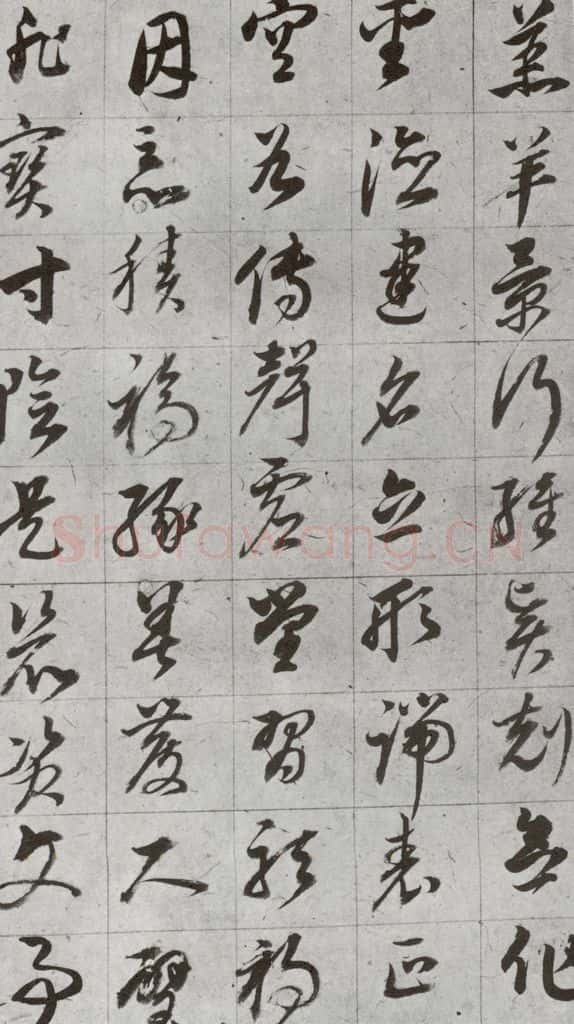 羔羊景行維賢剋念作
聖德建名立形端表正
空谷傳聲虛堂習聽禍
因惡積福緣善慶尺璧
非寶寸陰是競資父事
Shufawang.CN